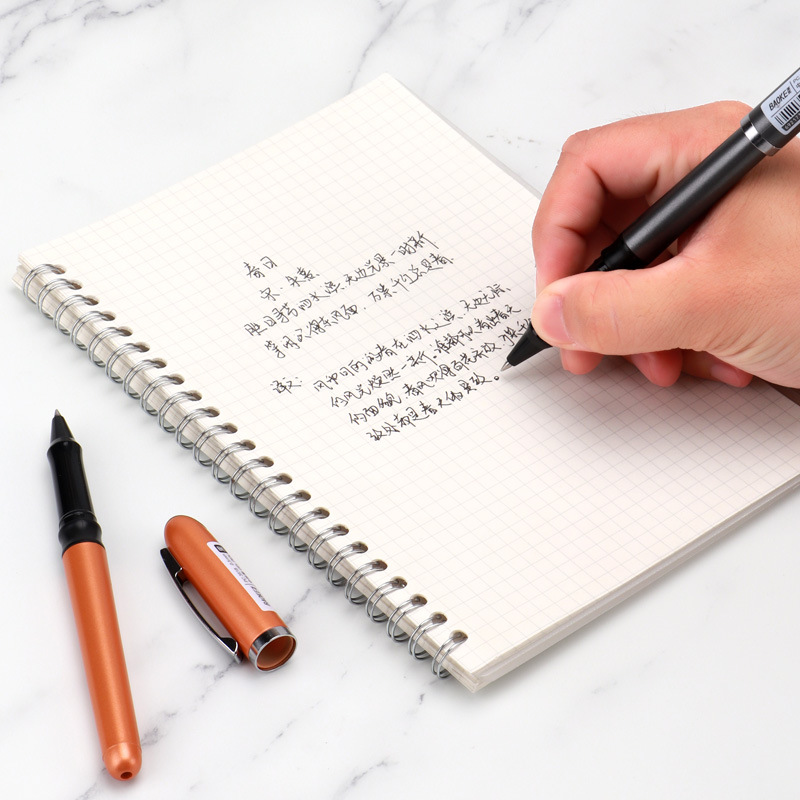 春日
宋·朱熹
胜日寻芳四水滨,无边光景一时新
等闲又得东风面.万紫千红总是春
译文: 风和日丽游春在四水之滨,无边无际
的风光焕然一新.谁都可以看出春天
的面貌,春风吹得百花开放,
到处都是春天的景致。
BAOKE